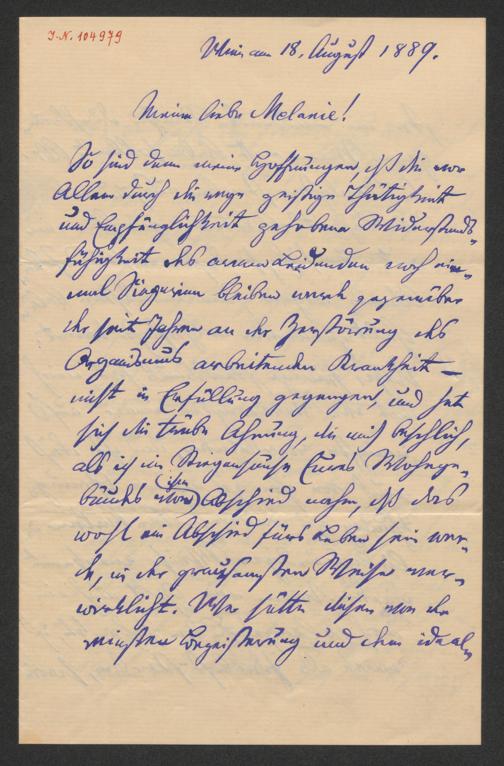 J.-N. 104979
Wien, am 18. August 1889.
Meine liebe Melanie!
So sind denn meine Hoffnungen, daß die vor
Allem durch die rege geistige Thätigkeit
und Empfänglichkeit gehobene Widerstands-
fähigkeit des armen Leidenden noch ein-
mal Siegerin bleiben werde gegenüber
der seit Jahren an der Zerstörung des
Organismus arbeitenden Krankheit –
nicht in Erfüllung gegangen, und hat
sich die trübe Ahnung, die mich beschlich,
als ich im Stiegenhause Eures Wohnge-
bäudes von ihm Abschied nahm, daß das
wohl ein Abschied fürs Leben sein wer-
de, in der grausamsten Weise ver-
wirklicht. Wer hätte diesen von der
reinsten Begeisterung und dem idealen